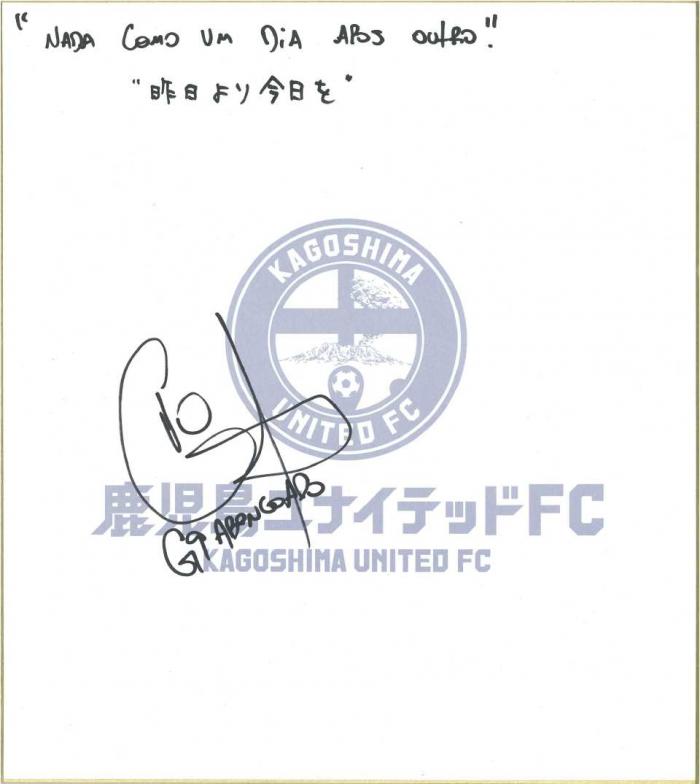 "NADA COMO UM DIA APOS OUTRO."
"昨日より今日を"
KAGOSHIMA
UNITED FC
10
鹿児島ユナイテッドFC
KAGOSHIMA UNITED FC